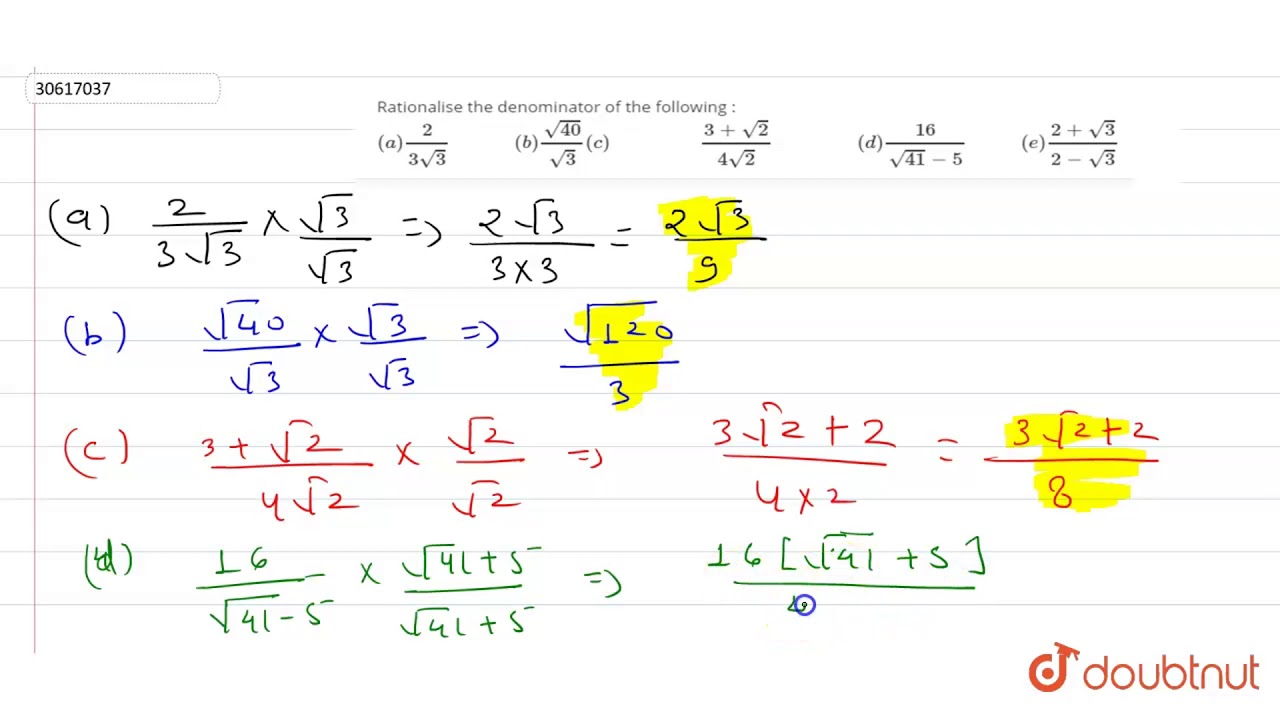 30617037
Rationalise the denominator of the following :
(a) 2/(3√3) (b) √40/√3 (c) (3 + √2)/(4√2) (d) 16/(√41 − 5) (e) (2 + √3)/(2 − √3)
(a) 2/(3√3) × √3/√3 => 2√3/(3×3) = 2√3/9
(b) √40/√3 × √3/√3 => √120/3
(c) (3+√2)/(4√2) × √2/√2 => (3√2+2)/(4×2) = (3√2+2)/8
(d) 16/(√41−5) × (√41+5)/(√41+5) => 16[√41+5]/
doubtnut